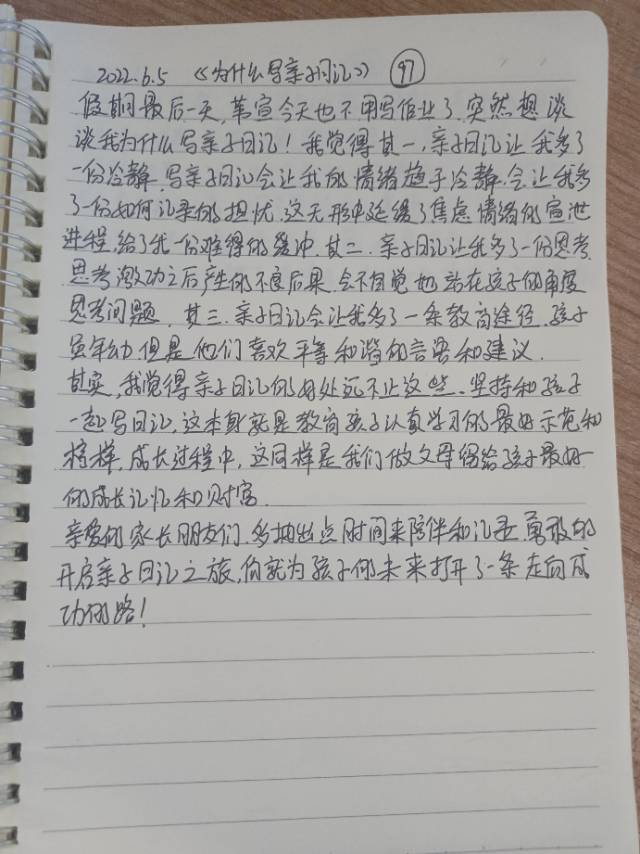 2022.6.5 《为什么写亲子日记》 97
假期最后一天,苇宣今天也不用写作业了,突然想谈
谈我为什么写亲子日记!我觉得其一,亲子日记让我多了
一份冷静,写亲子日记会让我的情绪趋于冷静,会让我多
了一份如何记录的担忧,这无形中延缓了焦虑情绪的宣泄
进程,给了我一份难得的缓冲.其二.亲子日记让我多了一份思考,
思考激动之后产生的不良后果,会不自觉地站在孩子的角度
思考问题.其三.亲子日记会让我多了一条教育途径,孩子
虽年幼,但是他们喜欢平等和谐的言语和建议.
其实,我觉得亲子日记的好处远不止这些.坚持和孩子
一起写日记,这本身就是教育孩子认真学习的最好示范和
榜样,成长过程中,这同样是我们做父母留给孩子最好
的成长记忆和财富.
亲爱的家长朋友们,多抽出点时间来陪伴和记录,勇敢的
开启亲子日记之旅,你就为孩子的未来打开了一条走向成
功的路!